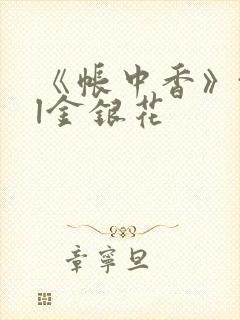 《帐中香》
|金银花
章寧旦